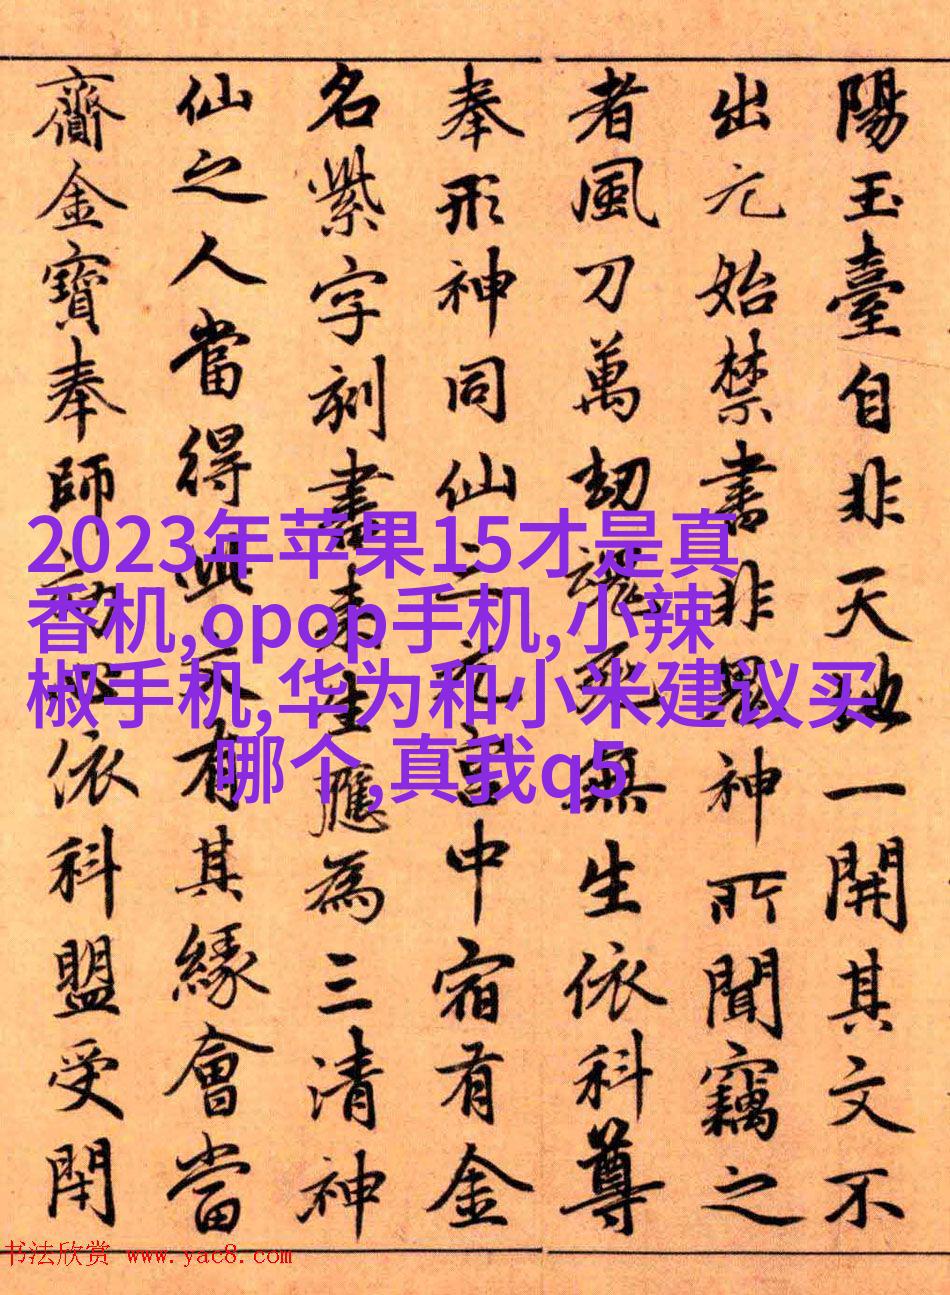 陽玉臺自非天地一開其文不
出元始禁書非鬼神所聞竊之
者風刀萬劫死無生依科尊
奉形神同仙之宮中宿有金
名紫字刻書來生應為三清神
仙之人當得此文有其緣會當
齎金寶奉師効心依科盟受閇
2023年苹果15才是真
香机,opop手机,小辣
椒手机,华为和小米建议买
哪个,真我q5
书法欣赏 www.yac8.com